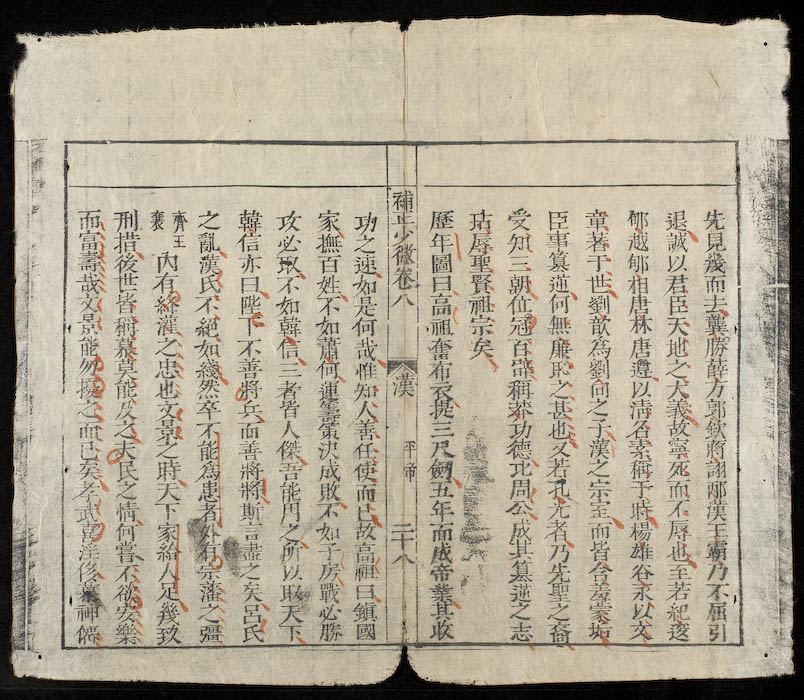 先見幾而去龔勝薛方郭欽蔣詡郕漢王霸乃不屈引
退誠以君臣天地之大義故寧死而不辱也至若紀逡
郇越郇相唐林唐遵以清名素稱于時楊雄谷永以文
章著于世劉歆為劉向之子漢之宗室而皆含羞蒙垢
臣事篡逆何無廉恥之甚也又若孔光者乃先聖之裔
受知三朝位冠百僚稱莽功德比周公成其篡逆之志
玷辱聖賢祖宗矣
歷年圖曰高祖奮布衣提三尺劒五年而成帝業其收
補正少微卷八
漢
平帝
二十八
功之速如是何哉惟知人善任使而已故高祖曰鎮國
家撫百姓不如蕭何運籌策決成敗不如子房戰必勝
攻必取不如韓信三者皆人傑吾能用之所以取天下
韓信亦曰陛下不善將兵而善將將斯言盡之矣呂氏
之亂漢氏不絕如綫然卒不能為患者外有宗藩之彊
齊王
襄
內有絳灌之忠也文景之時天下家給人足幾致
刑措後世皆稱慕莫能及之夫民之情何嘗不欲安樂
而富壽哉文景能勿擾之而已矣孝武窮淫侈
神僊